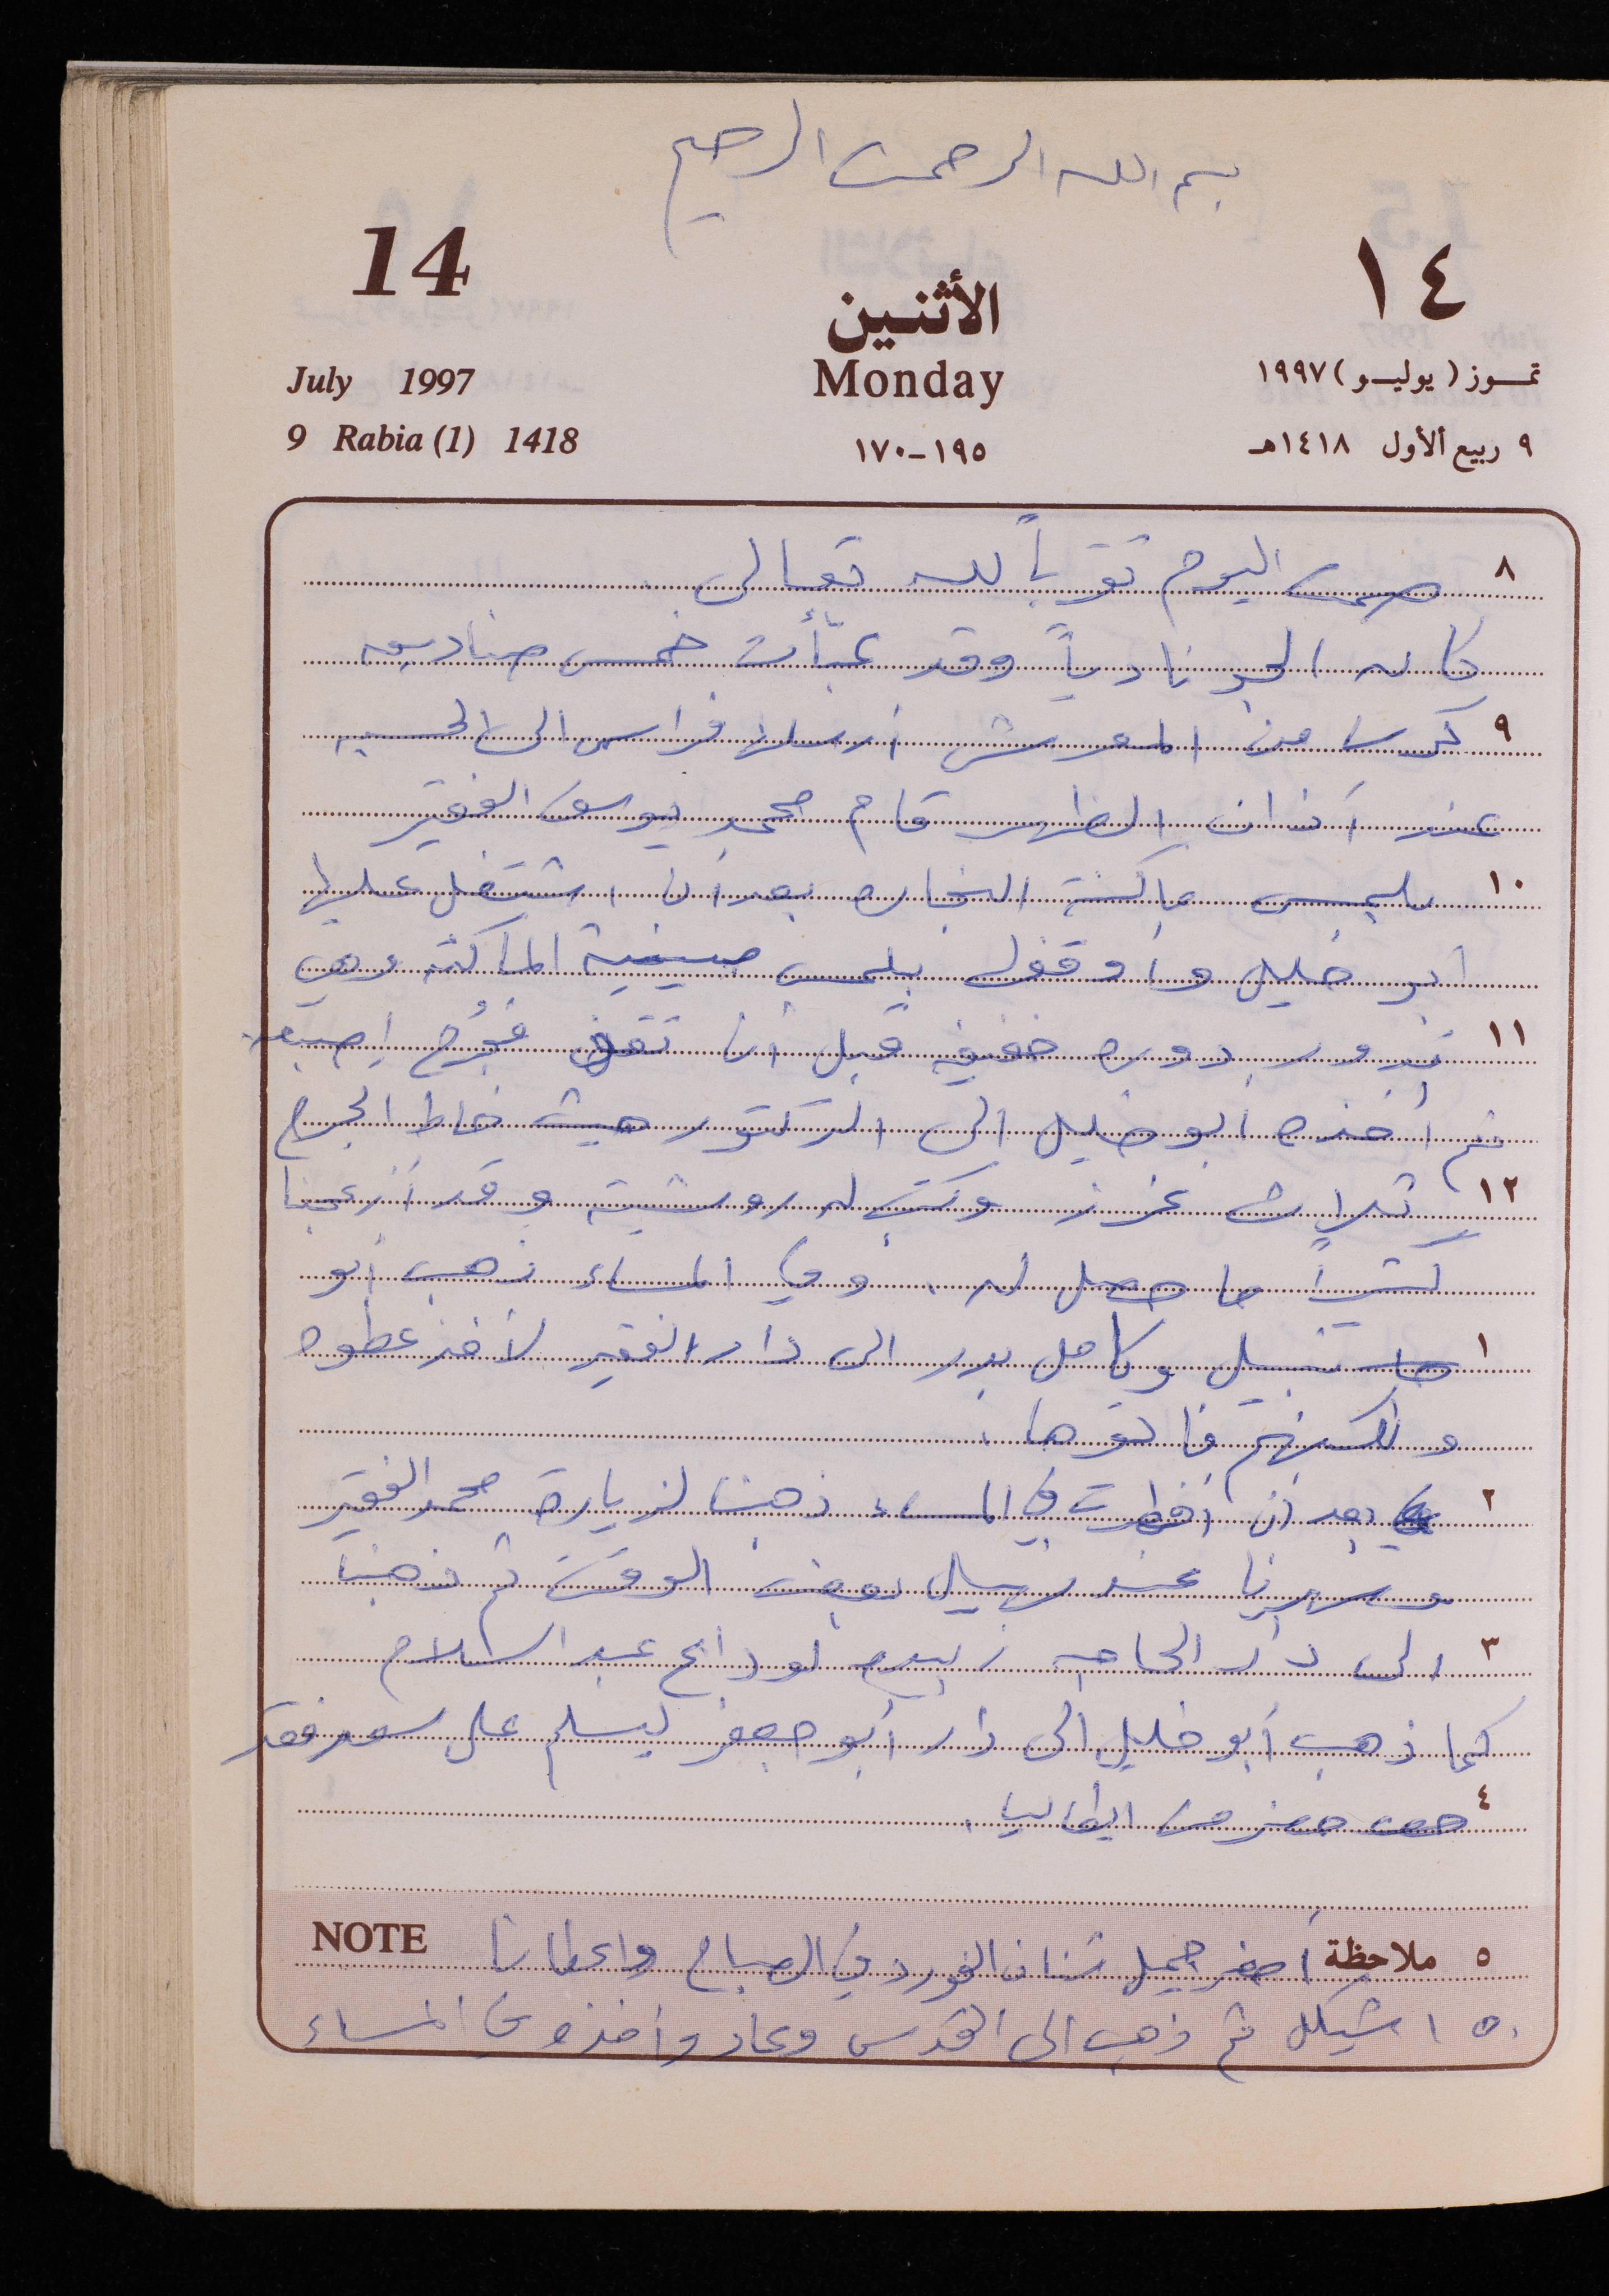 بسم الله الرحمن الرحيم
14
١٤
الأثنين
Monday
July 1997
تمـوز (يوليـو) ١٩٩٧
9 Rabia (1) 1418
١٩٥-١٧٠
٩ ربيع الأول ١٤١٨هـ
٨ صمت اليوم تقرباً لله تعالى
كان الجو نادياً وقد عبّأت خمس صناديق
٩ من المعرش أرسلها فراس الى الحسبه
عند آذان الظهر قام محمد يوسف الفقير
١٠ بلمس ماكنة النجاره بعد أن اشتغل عليها
ابو خليل وأوقف بلمس صينية الماكنة وهي
١١ تدور دوره خفيفه قبل أن تقف فجُرح إصبعه
ثم أخذه ابو خليل الى الدكتور حيث خاط الجرح
١٢ ثلاث غرز وكتب له روشيتة وقد أزعجنا
كثيراً ما حصل له. وفي المساء ذهب أبو
١ نبيل وكامل بدر الى دار الفقير لأخذ عطوه
ولكنهم فاتوها.
٢ بعد أن أفطرت في المساء ذهبنا لزيارة محمد الفقير
وسهرنا عند نبيل بعض الوقت ثم ذهبنا
٣ الى دار الحاجه زبيده لوداع عبد السلام
كما ذهب أبو خليل الى دار أبو جعفر ليسلم على سعد فقد
٤ حضر من ايطاليا.
٥ ملاحظة NOTE أحضر جميل تنك الفورد في الصباح واعطانا
١٥٠ شيكل ثم ذهب الى القدس وعاد وأخذه في المساء